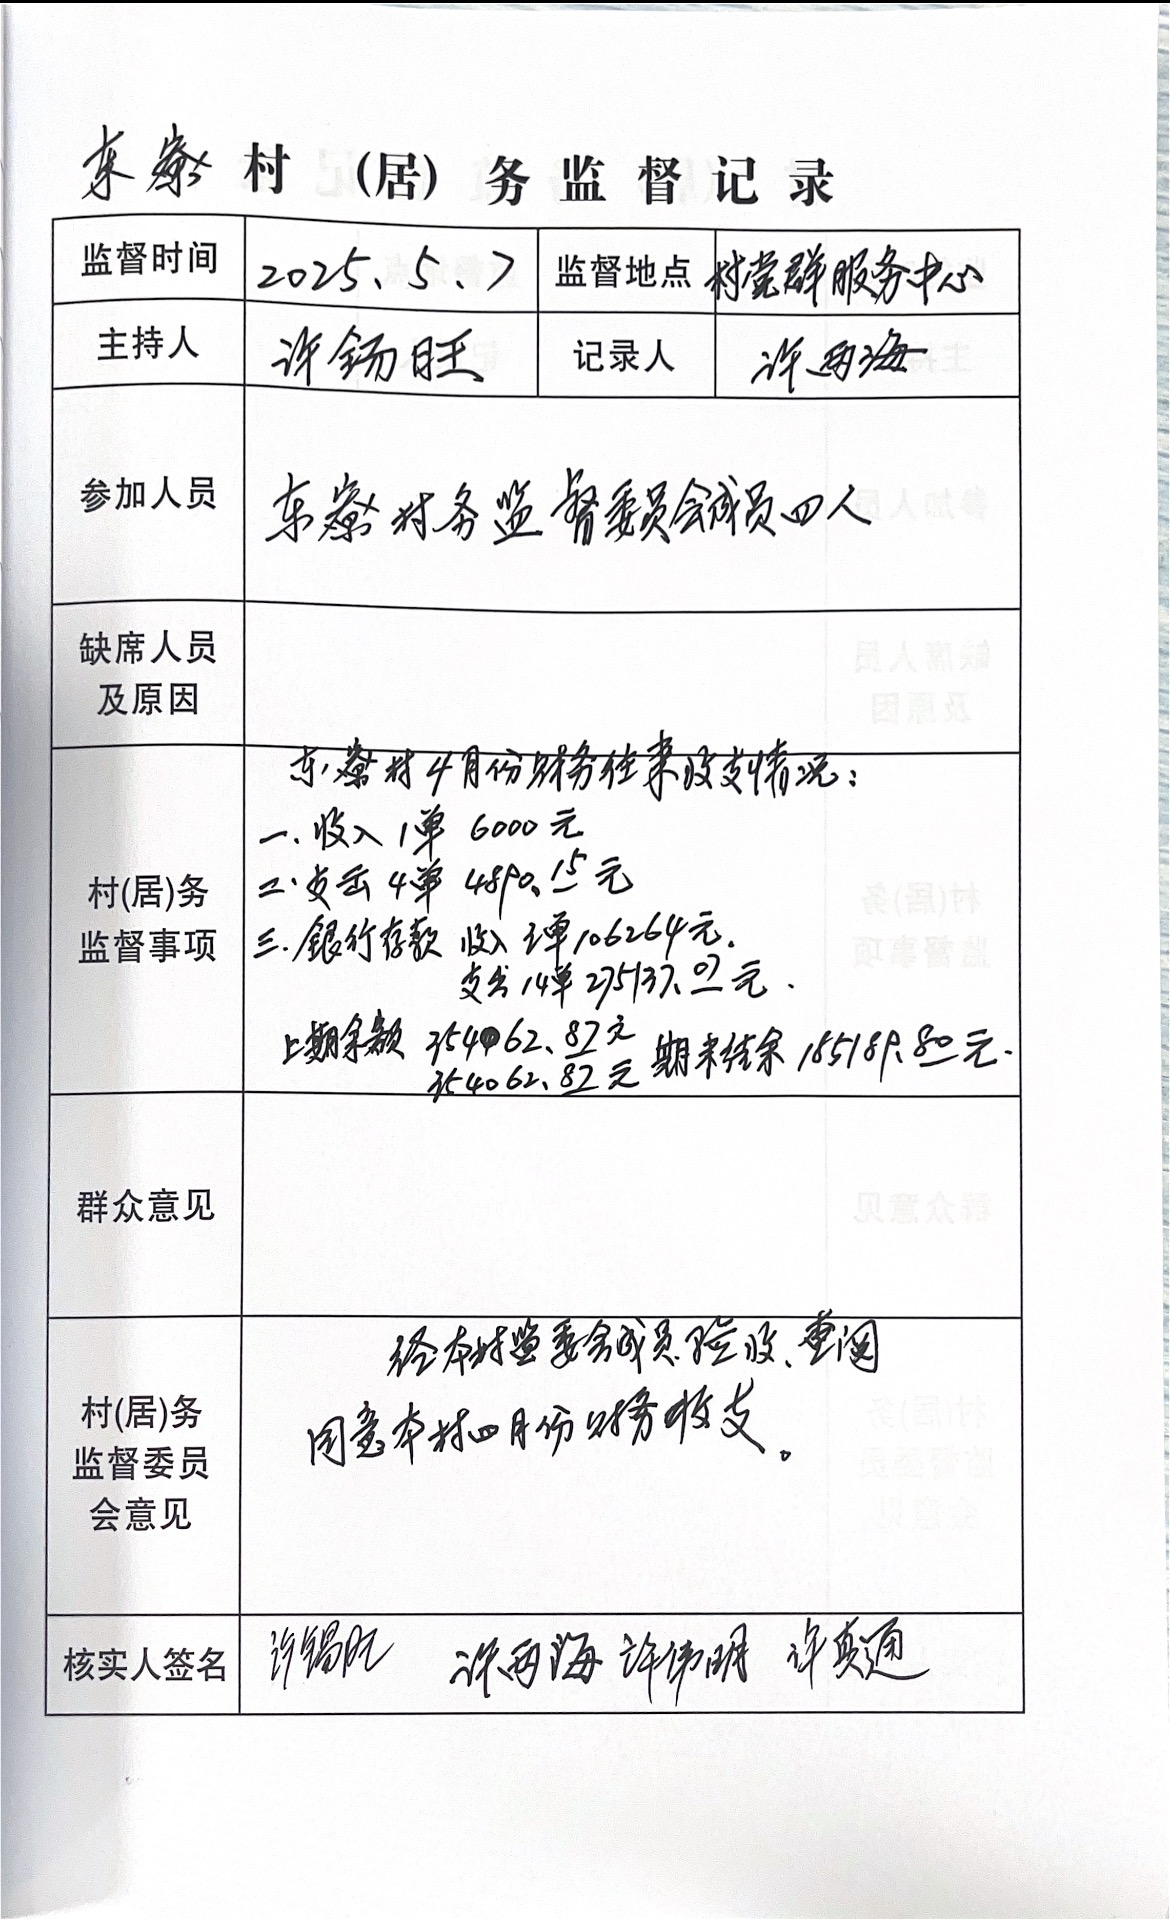 东寮村(居)务监督记录
监督时间 2025、5、7 监督地点 村党群服务中心
主持人 许钖旺 记录人 许两海
参加人员 东寮村务监督委员会成员四人
缺席人员
及原因
东寮村4月份财务往来收支情况：
一.收入1单 6000元
二.支出4单 4890.15元
三.银行存款 收入 单106264元.
支出14单275137.07元.
上期余额 354062.87元 期末结余185189.80元.
354062.87元
村(居)务
监督事项
群众意见
经本村监委会成员验收、查阅
同意本村四月份财务收支。
村(居)务
监督委员
会意见
核实人签名 许锡旺 许两海 许伟明 许真通